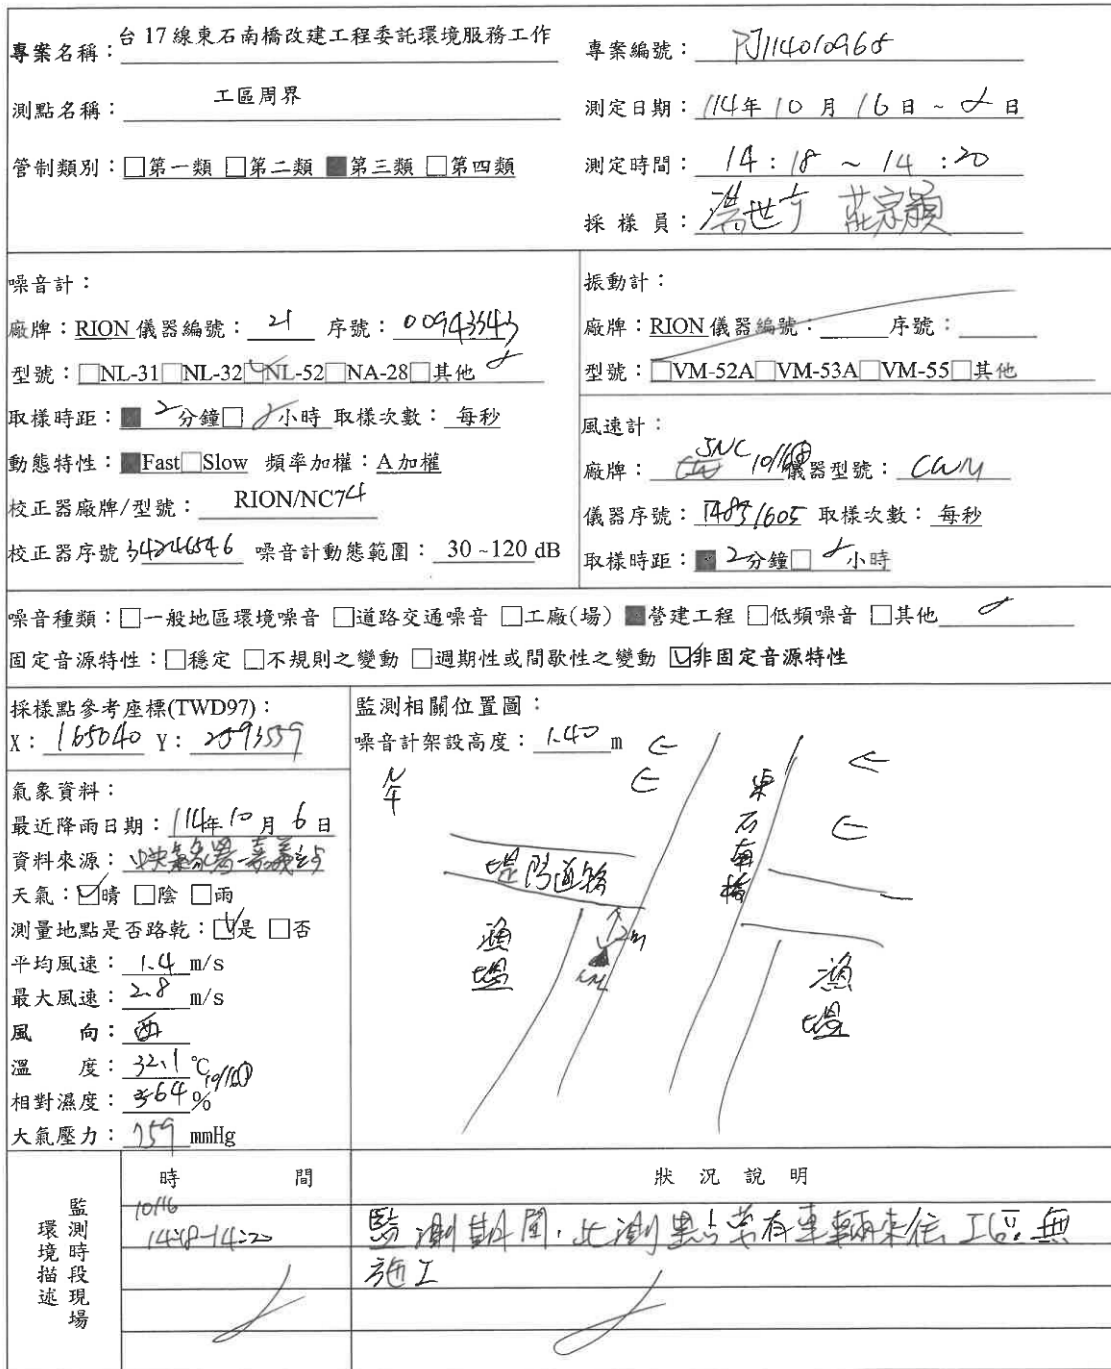 專案名稱：台 17 線東石南橋改建工程委託環境服務工作
專案編號：PJ114010965
測點名稱：工區周界
測定日期：114年 10 月 16 日 ~ 日
管制類別：□第一類 □第二類 ■第三類 □第四類
測定時間：14：18 ~ 14：20
採 樣 員：莊宗穎
噪音計：
廠牌：RION 儀器編號：21 序號：00943543
型號：□NL-31□NL-32☑NL-52□NA-28□其他
取樣時距：■ 2分鐘□ 小時 取樣次數：每秒
動態特性：■Fast□Slow 頻率加權：A 加權
校正器廠牌/型號：RION/NC74
校正器序號 34246546 噪音計動態範圍：30 ~120 dB
振動計：
廠牌：RION 儀器編號： 序號：
型號：□VM-52A□VM-53A□VM-55□其他
風速計：
廠牌：JNC 10/16 儀器型號：CWM
儀器序號：T4831605 取樣次數：每秒
取樣時距：■ 2分鐘□ 小時
噪音種類：□一般地區環境噪音 □道路交通噪音 □工廠(場) ■營建工程 □低頻噪音 □其他
固定音源特性：□穩定 □不規則之變動 □週期性或間歇性之變動 ☑非固定音源特性
採樣點參考座標(TWD97)：
X：165040 Y：2593559
氣象資料：
最近降雨日期：114年 10 月 6 日
資料來源：中央氣象署-嘉義站
天氣：☑晴 □陰 □雨
測量地點是否路乾：☑是 □否
平均風速：1.4 m/s
最大風速：2.8 m/s
風 向：西
溫 度：32.1 ℃
10/16
相對濕度：64 %
大氣壓力：759 mmHg
監測相關位置圖：
噪音計架設高度：1.40 m
N
東石南橋
堤防道路
2m
漁塭
漁塭
監測時段現場環境描述
時 間
狀 況 說 明
10/16
14:18-14:20
監測期間，此測點常有車輛來往，工區無
施工